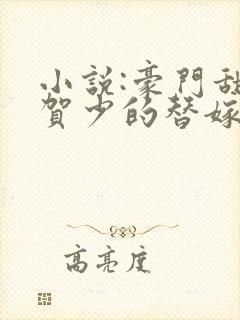 小說:豪門甜
賀少的替嫁
高亮度